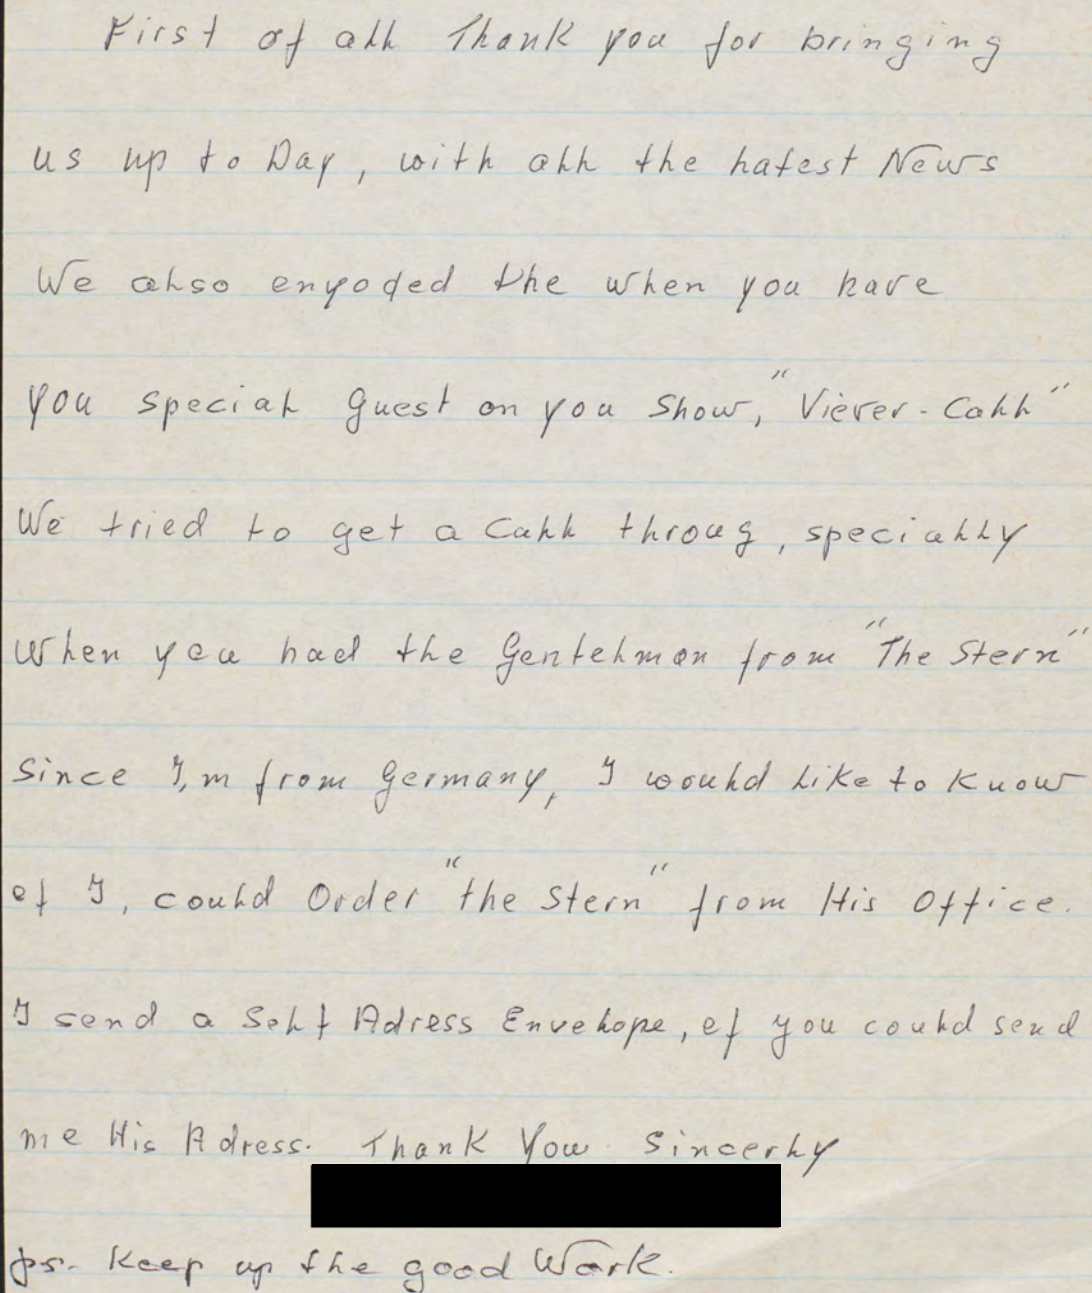 First of all Thank you for bringing
us up to Day, with all the latest News
We also enyoded the when you have
you special guest on you Show, "Viever-Call"
We tried to get a Call throug, specially
When you had the Gentelman from "The Stern"
Since I,m from Germany, I would like to Know
ef I, could Order "the Stern" from His Office.
I send a Self Adress Envelope, ef you could send
me His Adress. Thank You. Sincerly
ps. Keep up the good Work.